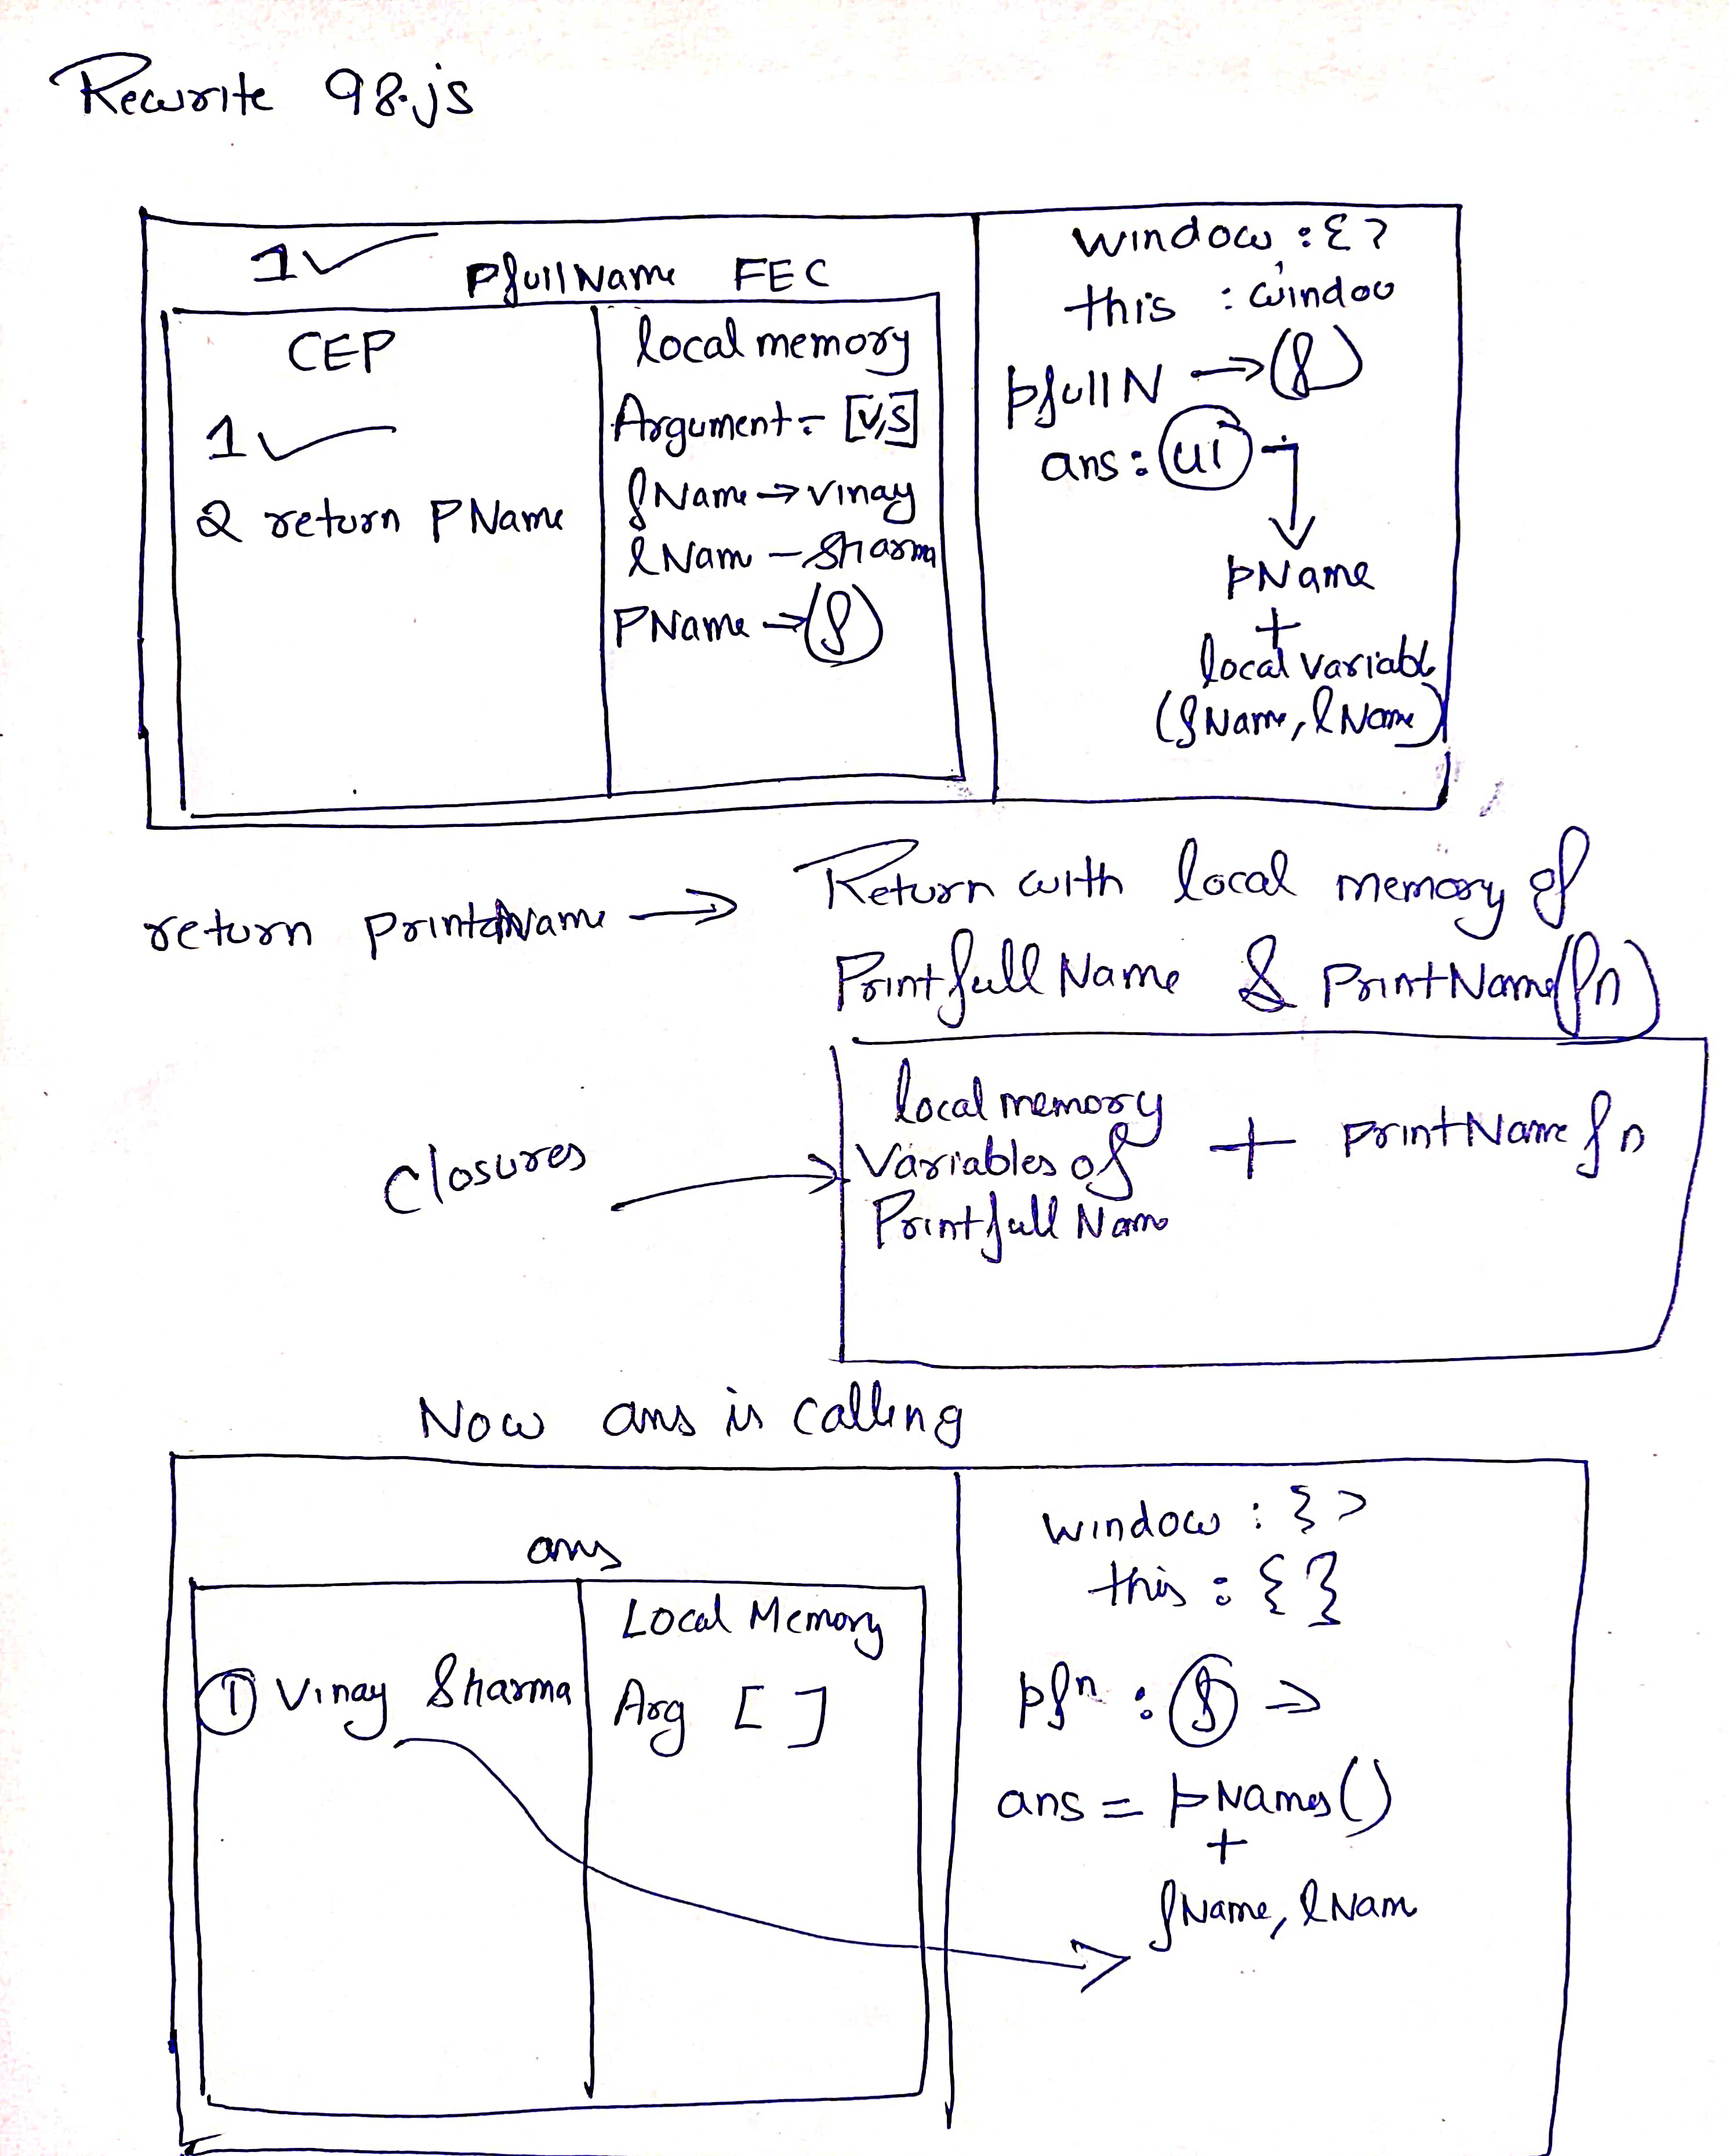 Rewrite 98.js
1 ✓
PfullName FEC
CEP
1 ✓
2 return PName
local memory
Argument = [V,S]
fName → vinay
lNam – Sharma
PName → (f)
window : { }
this : window
pfullN → (f)
ans : (ui)
pName
+
local variabl
(fName, lName)
return printName → Return with local memory of
Printfull Name & PrintName(fn)
Closures →
local memory
Variables of
Printfull Nam
+ printName fn
Now ans is calling
ans
① Vinay Sharma
Local Memory
Arg [ ]
window : { }
this : { }
pfn : (f) ⇒
ans = pNames()
+
fName, lNam